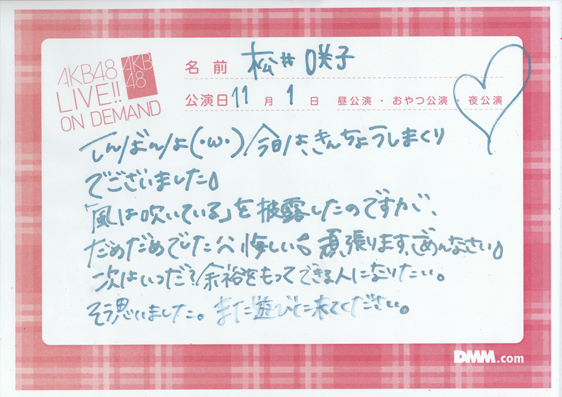 AKB48
LIVE!!
ON DEMAND
AKB
48
名前 松井咲子
公演日 11月1日 昼公演・おやつ公演・夜公演
でんばんは(・ω・) 今日は、きんちょうしまくり
でございました。
「風は吹いている」を披露したのですが、
だめだめでした 悔しい。頑張ります、ごめんなさい。
次はいつだ?余裕をもってできる人になりたい。
そう思いました。また遊びに来てください。
DMM.com